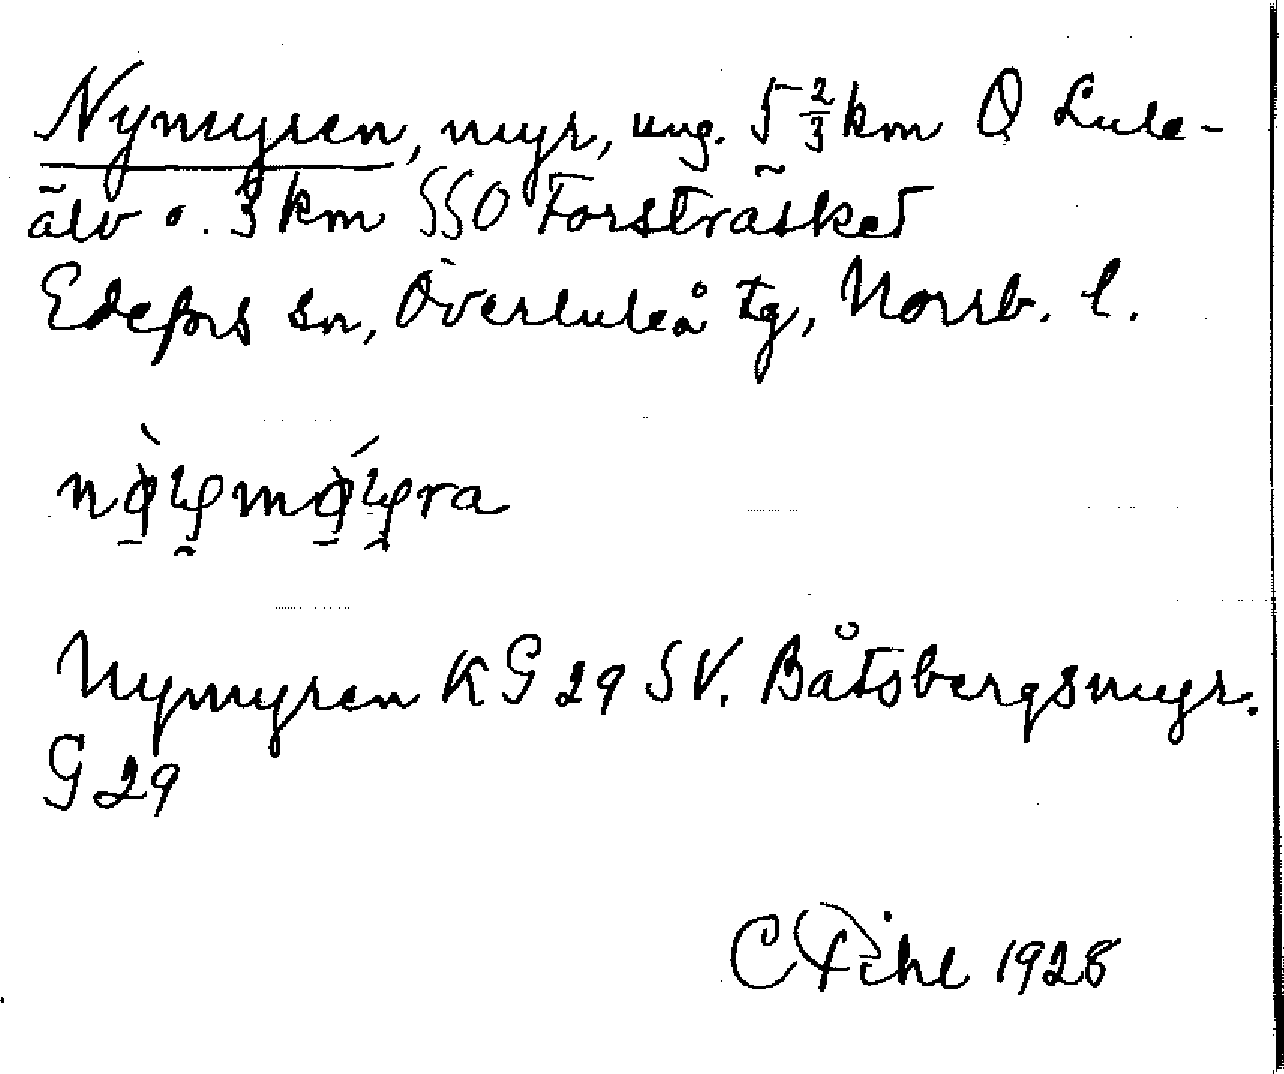 Nymyren, myr, ung. 5 2/3 km O Lule-
älv o. 3 km SSO Forsträsket
Edefors sn, Överluleå tg, Norrb. l.
Nymyren KG 29 SV. Båtsbergsmyr.
G 29
C Pihl 1928